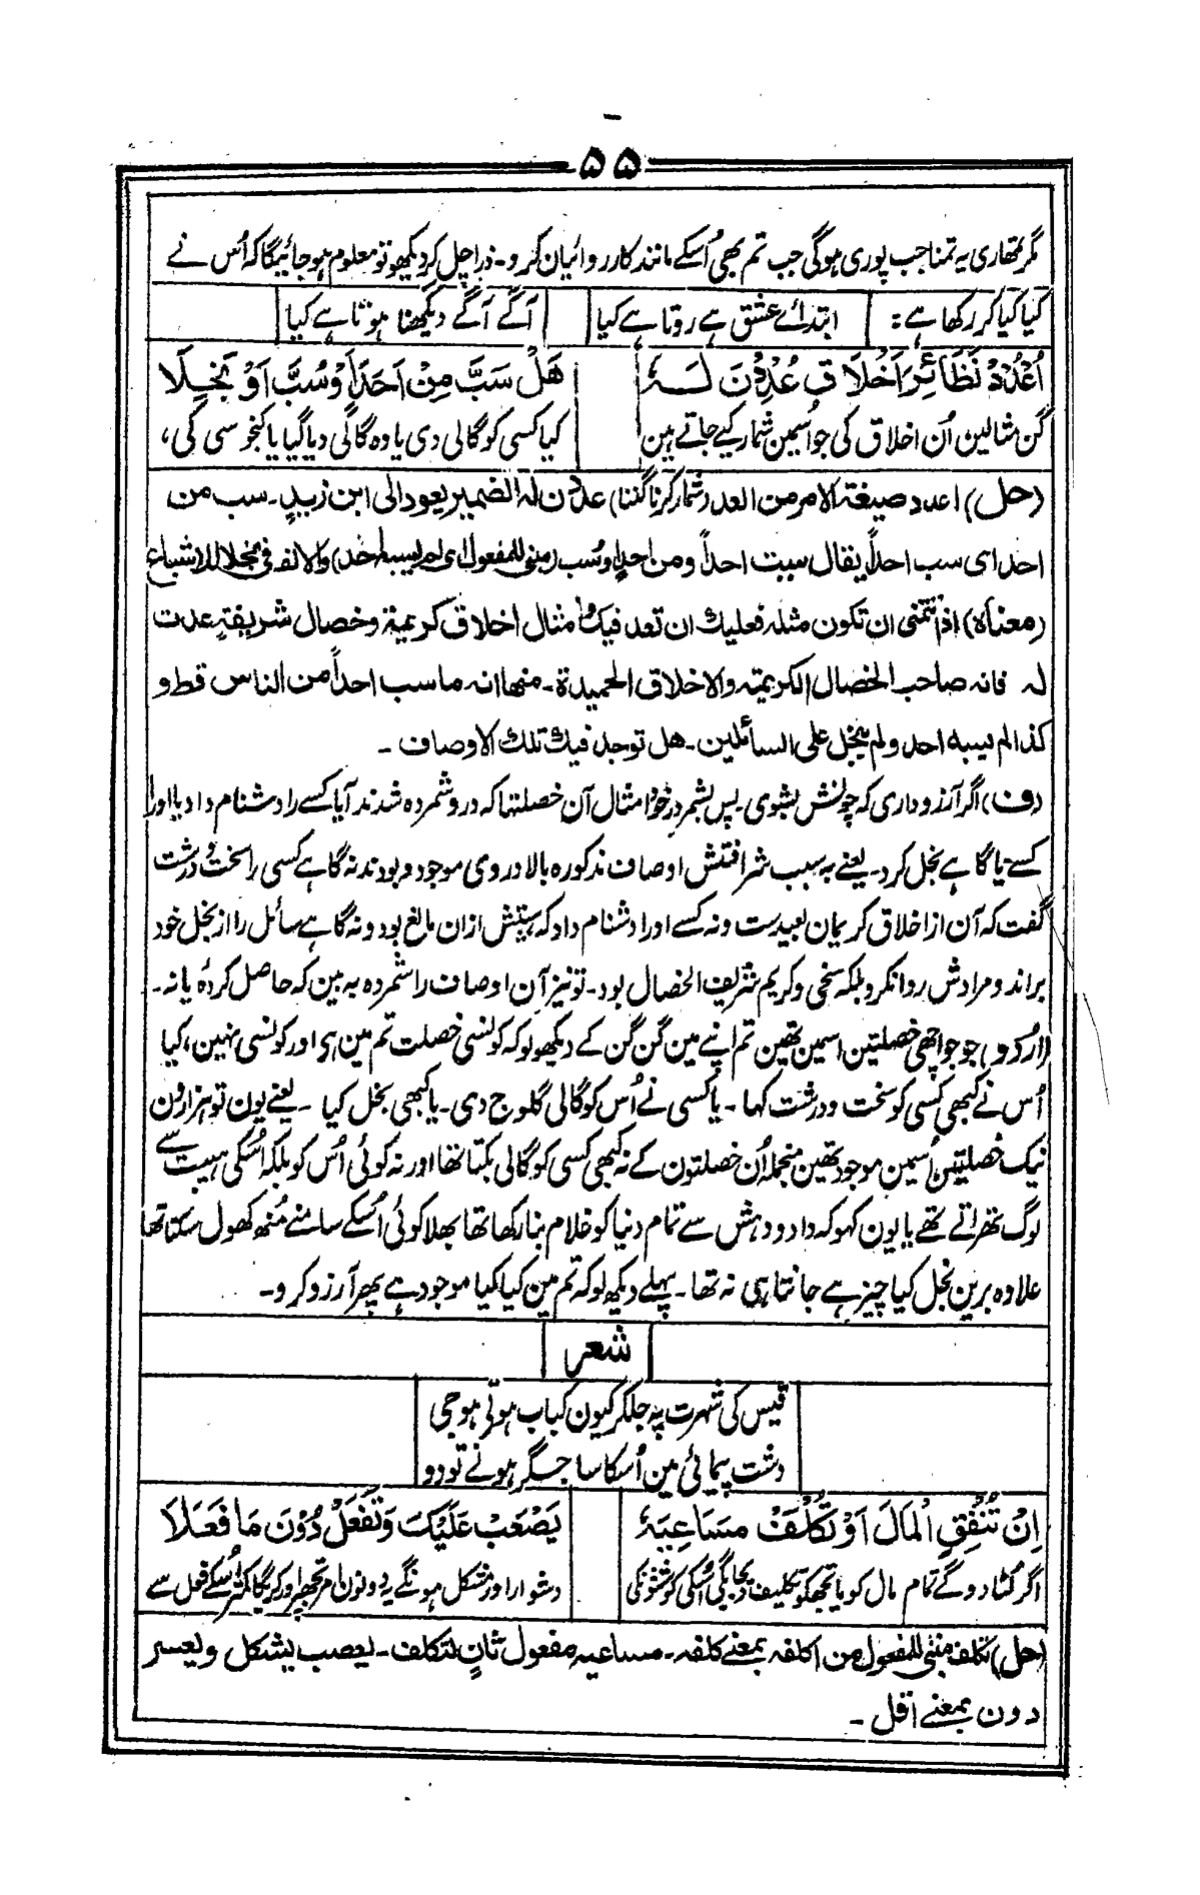 ۵۵
مگر تمھاری یہ تمنا جب پوری ہوگی جب تم بھی اُسکے مانند کارروائیان کرو۔ ذرا چل کر دیکھو تو معلوم ہوجائیگا کہ اُس نے
کیا کیا کر رکھا ہے : ابتدائے عشق ہے روتا ہے کیا آگے آگے دیکھنا ہوتا ہے کیا
اُعْدُدْ نَظَائِرَ اَخْلَاقٍ عُدِدْنَ لَهٗ هَلْ سَبَّ مِنْ اَحَدٍ اَوْ سُبَّ اَوْ بَخِلَا
گن مثالین اُن اخلاق کی جو اُسمین شمار کیے جاتے ہین کیا کسی کو گالی دی یا وہ گالی دیا گیا یا کنجوسی کی،
(حل) اعدد صیغة الامر من العد (شمار کرنا گننا) عددن له الضمیر یعود الی ابن زبید۔ سب من
احد ای سب احداً یقال سببت احداً ومن احدٍ اوسُب (مبنی للمفعول ای لم یسبه احد) والالف فی بخلا للاشباع
(معناه) اذا تتمنی ان تکون مثله فعلیك ان تعد فیك امثال اخلاق کریمة وخصال شریفةٍ عدت
له فانه صاحب الخصال الکریمته والاخلاق الحمیدة۔ منها انه ما سب احداً من الناس قط و
کذا لم یسبه احد ولم یبخل علی السائلین۔ هل توجد فیك تلك الاوصاف ۔
(ف) اگر آرزو داری که چونش بشوی۔ پس بشمر در خود امثال آن خصلتها که درو شمرده شدند آیا کسے را دشنام داد یا اورا
کسے یا گاہے بخل کرد۔ یعنے به سبب شرافتش اوصاف مذکوره بالا در وی موجود بودند نه گاہے کسی را سخت و درشت
گفت که آن از اخلاق کریمان بعید ست و نه کسے اورا دشنام داد که ہیبتش ازان مانع بود و نه گاہے سائل را از بخل خود
براند و مرادش روا نکرد بلکه سخی و کریم شریف الخصال بود۔ تو نیز آن اوصاف را شمرده به بین که حاصل کردۂ یا نه۔
(اردو) جو جو اچھی خصلتین اسمین تھین تم اپنے مین گن گن کے دیکھو لو کہ کونسی خصلت تم مین ہی اور کونسی نہین، کیا
اُس نے کبھی کسی کو سخت و درشت کہا ۔ یا کسی نے اُس کو گالی گلوج دی۔ یا کبھی بخل کیا ۔ یعنے یون تو ہزارون
نیک خصلتین اُسمین موجود تھین منجملہ اُن خصلتون کے نہ کبھی کسی کو گالی بکتا تھا اور نہ کوئی اُس کو بلکہ اُسکی ہیبت سے
لوگ تھراتے تھے یا یون کہو کہ داد و دہش سے تمام دنیا کو غلام بنا رکھا تھا بھلا کوئی اُسکے سامنے مُنھ کھول سکتا تھا
علاوہ برین بخل کیا چیز ہے جانتا ہی نہ تھا۔ پہلے دیکھ لو کہ تم مین کیا کیا موجود ہے پھر آرزو کرو۔
شعر
قیس کی شہرت پہ جلکر کیون کباب ہوتی ہو جی
دشت پیمائی مین اُسکا سا جگر ہونے تو دو
اِنْ تُنْفِقِ الْمَالَ اَوْ تُكْلَفْ مَسَاعِيَهٗ يَصْعَبْ عَلَيْكَ وَتَفْعَلْ دُوْنَ مَا فَعَلَا
اگر لُٹا دوگے تمام مال کو یا تجھکو تکلیف دیجائیگی اُسکی کوششونکی دشوار اور مشکل ہونگے یہ دونون امر تجھپر اور کریگا کمتر اُسکے فعل سے
(حل) تکلف مبنی للمفعول من اکلفه بمعنے کلفه۔ مساعیه مفعول ثانٍ لتکلف۔ یصعب یشکل ویعسر
دون بمعنے اقل ۔